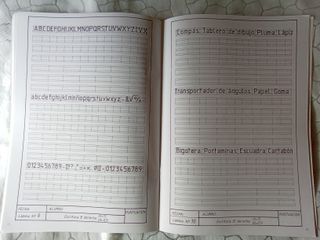 ABCDEFGHIJKLMNOPQRSTUVWXYZ
abcdefghijklmnñopqrstuvwxyz
0123456789
0123456789
FECHA
ALUMNO
PUNTUACIÓN
LÁMINA Nº 9
Compás, Tablero de dibujo, Pluma, Lápiz
Transportador de ángulos, Papel, Goma
Bigotera, Portaminas, Escuadra, Cartabón
FECHA
ALUMNO
PUNTUACIÓN
LÁMINA Nº 10